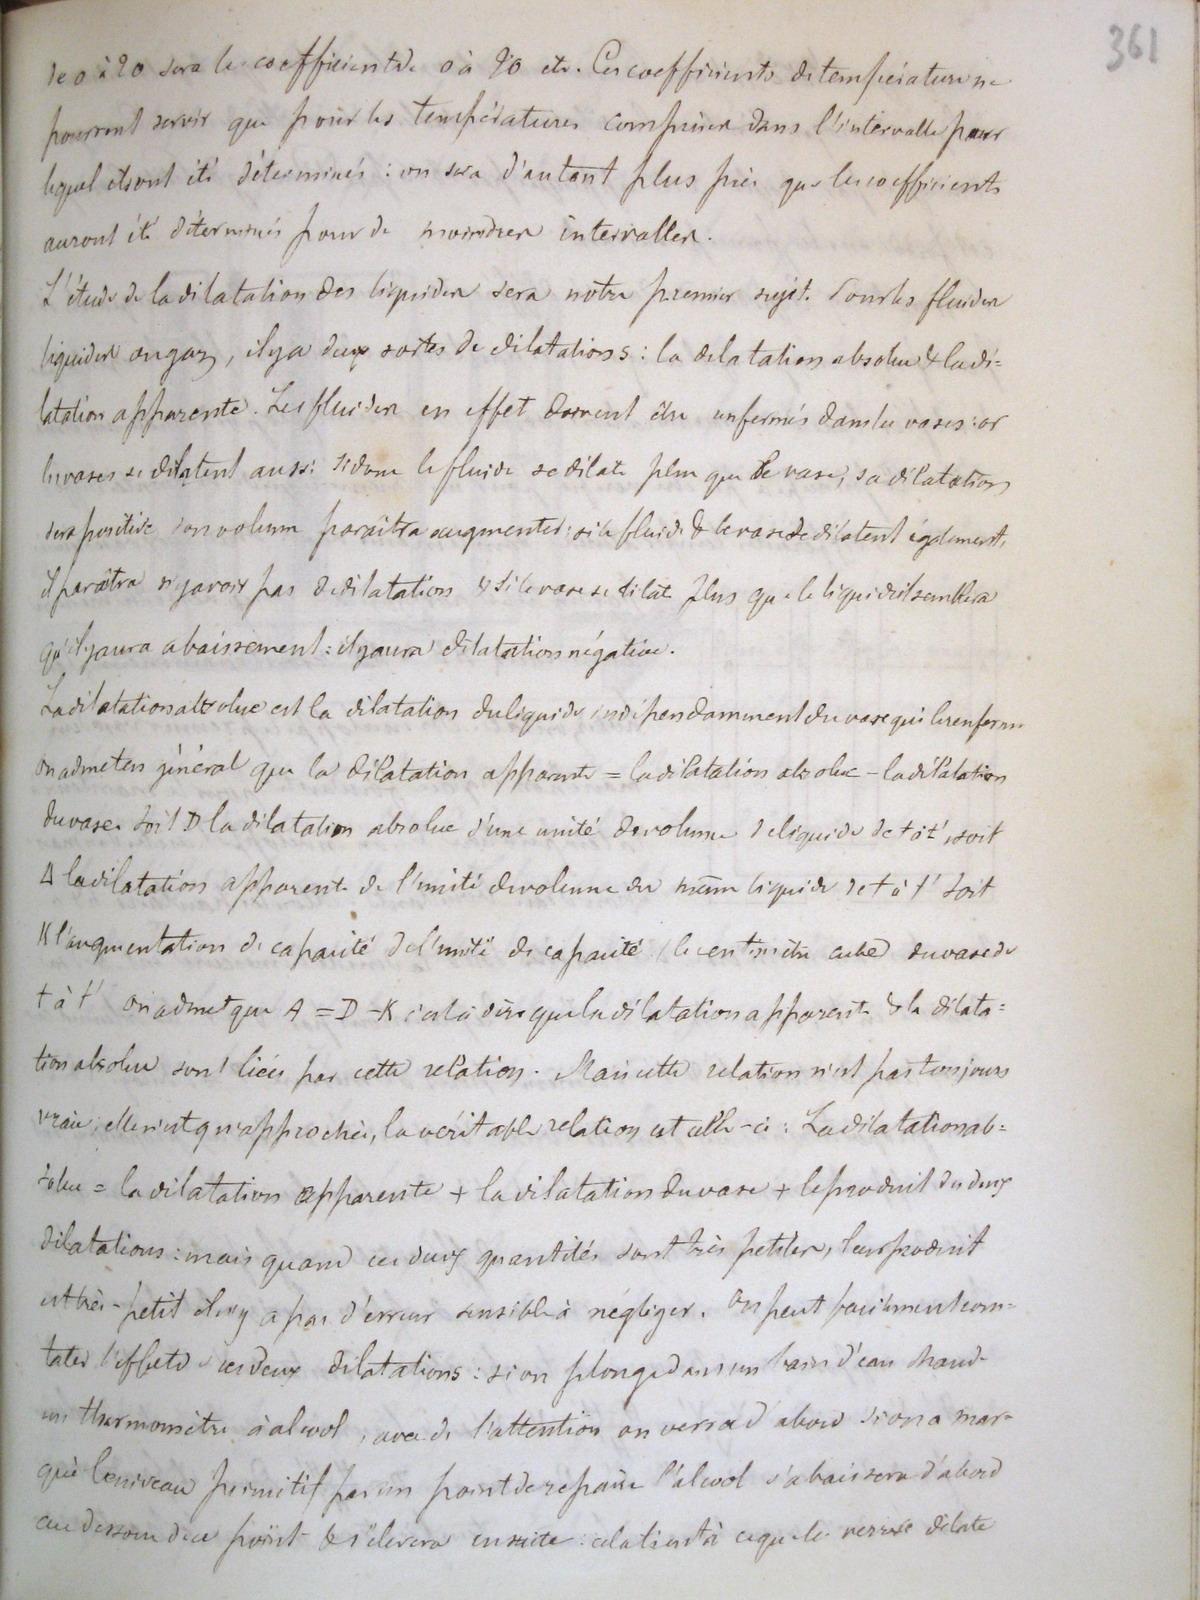 361
de 0 à 20 sera le coefficient de 0 à 20 etc. Ces coefficients de température ne
pourront servir que pour les températures comprises dans l'intervalle pour
lequel ils ont été déterminés : on sera d'autant plus près que les coefficients
auront été déterminés pour de moindres intervalles.
L'étude de la dilatation des liquides sera notre premier sujet. Pour les fluides
liquides ou gaz, il y a deux sortes de dilatations : la dilatation absolue & la di=
latation apparente. Les fluides en effet doivent être enfermés dans les vases : or
les vases se dilatent aussi si donc le fluide se dilate plus que le vase, sa dilatation
sera positive son volume paraîtra augmenter : si le fluide & le vase se dilatent également,
il paraîtra n'y avoir pas de dilatation & si le vase se dilate plus que le liquide il semblera
qu'il y aura abaissement : il y aura dilatation négative.
La dilatation absolue est la dilatation du liquide indépendamment du vase qui le renferme
on admet en général que la dilatation apparente = la dilatation absolue - la dilatation
du vase. Soit D la dilatation absolue d'une unité de volume de liquide de t à t', soit
Δ la dilatation apparente de l'unité de volume du même liquide de t à t' soit
K l'augmentation de capacité de l'unité de capacité (le centimètre cube) du vase de
t à t' on admet que Δ = D - K c'est à dire que la dilatation apparente & la dilata=
tion absolue sont liées par cette relation. Mais cette relation n'est pas toujours
vraie ; elle n'est qu'approchée, la véritable relation est celle-ci : La dilatation ab=
solue = la dilatation apparente + la dilatation du vase + le produit des deux
dilatations : mais quand ces deux quantités sont très petites, leur produit
est très-petit il n'y a pas d'erreur sensible à négliger. On peut facilement cons=
tater l'effet de ces deux dilatations : si on plonge dans un bain d'eau chaude
un thermomètre à alcool, avec de l'attention on verra d'abord si on a mar=
qué le niveau primitif par un point de repaire l'alcool s'abaissera d'abord
au dessous de ce point & s'élevera ensuite : cela tient à ce que le verre se dilate